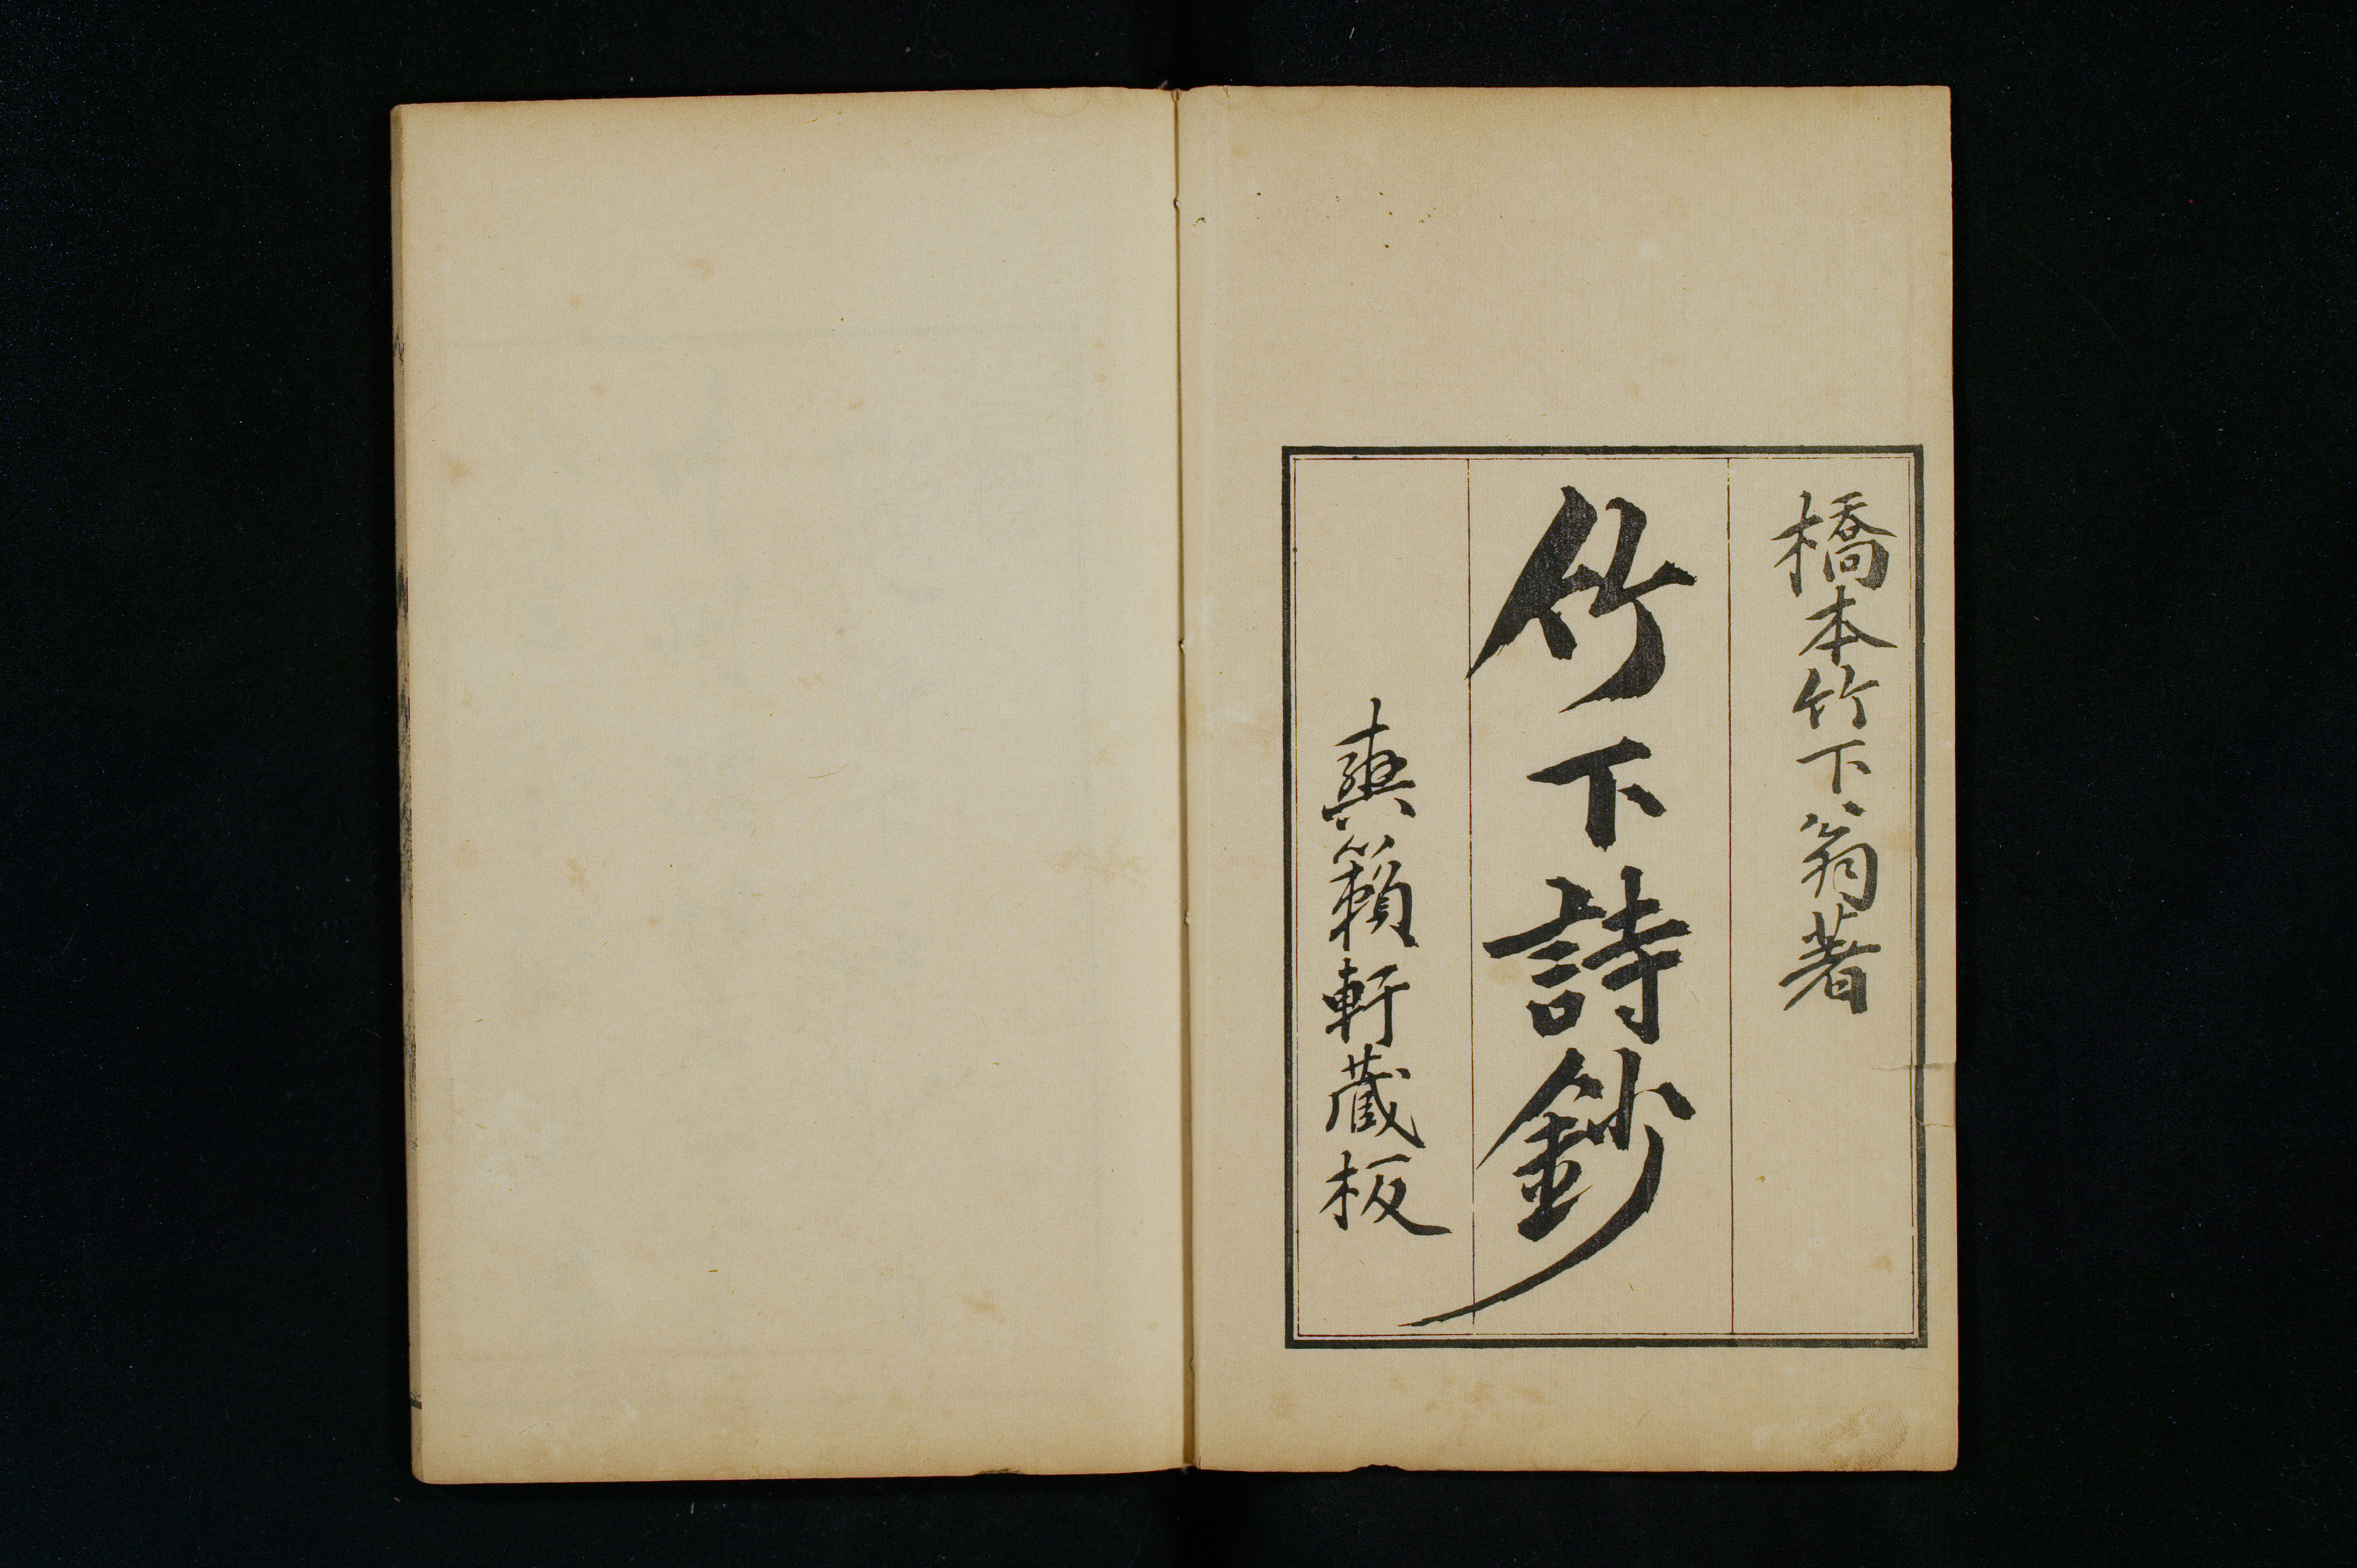 橋本竹下翁著
竹下詩鈔
爽籟軒藏板